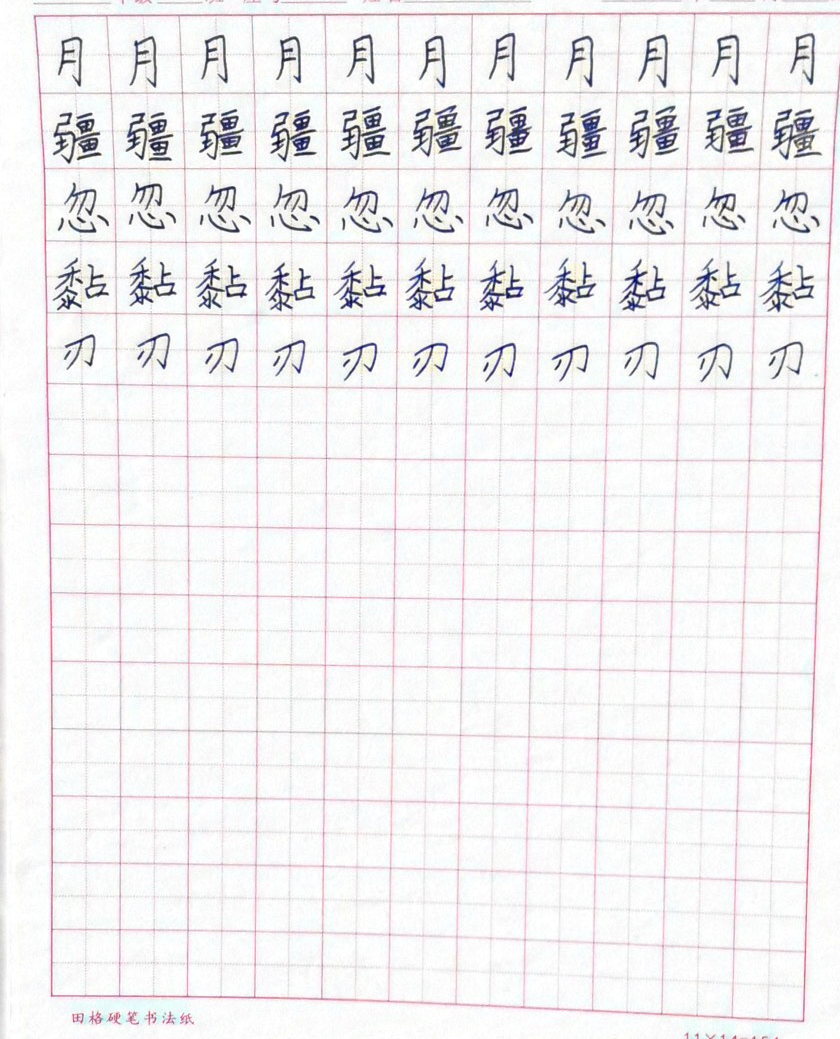 月月月月月月月月月月月
疆疆疆疆疆疆疆疆疆疆疆
忽忽忽忽忽忽忽忽忽忽忽
黏黏黏黏黏黏黏黏黏黏黏
刃刃刃刃刃刃刃刃刃刃刃
田格硬笔书法纸